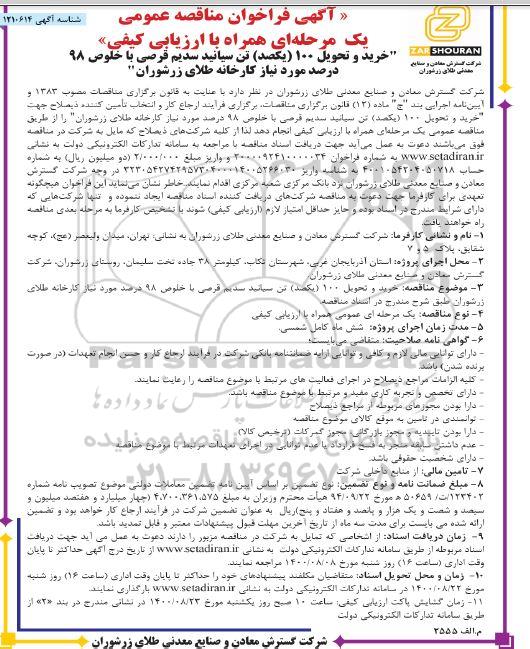 شناسه آگهی ۱۲۱۰۶۱۴
« آگهی فراخوان مناقصه عمومی
یک مرحله‌ای همراه با ارزیابی کیفی»
ZARSHOURAN
شرکت گسترش معادن و صنایع
معدنی طلای زرشوران
"خرید و تحویل ۱۰۰ (یکصد) تن سیانید سدیم قرصی با خلوص ۹۸
درصد مورد نیاز کارخانه طلای زرشوران"
شرکت گسترش معادن و صنایع معدنی طلای زرشوران در نظر دارد با عنایت به قانون برگزاری مناقصات مصوب ۱۳۸۳ و
آیین‌نامه اجرایی بند "ج" ماده (۱۲) قانون برگزاری مناقصات، برگزاری فرآیند ارجاع کار و انتخاب تأمین کننده ذیصلاح جهت
"خرید و تحویل ۱۰۰ (یکصد) تن سیانید سدیم قرصی با خلوص ۹۸ درصد مورد نیاز کارخانه طلای زرشوران" را از طریق
مناقصه عمومی یک مرحله‌ای همراه با ارزیابی کیفی انجام دهد لذا از کلیه شرکت‌های ذیصلاح که مایل به شرکت در مناقصه
فوق می‌باشند دعوت به عمل می‌آید جهت دریافت اسناد مناقصه با مراجعه به سامانه تدارکات الکترونیکی دولت به نشانی
www.setadiran.ir به شماره فراخوان ۲۰۰۰۰۹۲۴۱۰۰۰۰۰۳۴ و واریز مبلغ ۲/۰۰۰/۰۰۰ (دو میلیون ریال) به شماره
حساب ۴۰۰۱۰۵۴۲۰۴۰۵۰۷۱۸ به شناسه واریز در وجه شرکت گسترش
معادن و صنایع معدنی طلای زرشوران نزد بانک مرکزی شعبه مرکزی اقدام نمایند. خاطر نشان می‌نماید این فراخوان هیچگونه
تعهدی برای کارفرما جهت دعوت به مناقصه شرکت‌های دریافت کننده اسناد مناقصه ایجاد ننموده و تنها شرکت‌هایی که
دارای شرایط مندرج در اسناد بوده و حایز حداقل امتیاز لازم (ارزیابی کیفی) شوند با تشخیص کارفرما به مرحله بعدی مناقصه
راه خواهند یافت.
۱- نام و نشانی کارفرما: شرکت گسترش معادن و صنایع معدنی طلای زرشوران به نشانی: تهران، میدان ولیعصر (عج)، کوچه
شقایق، پلاک ۵ و ۷
۲- محل اجرای پروژه: استان آذربایجان غربی، شهرستان تکاب، کیلومتر ۳۸ جاده تخت سلیمان، روستای زرشوران، شرکت
گسترش معادن و صنایع معدنی طلای زرشوران
۳- موضوع مناقصه: خرید و تحویل ۱۰۰ (یکصد) تن سیانید سدیم قرصی با خلوص ۹۸ درصد مورد نیاز کارخانه طلای
زرشوران طبق شرح مندرج در اسناد مناقصه
۴- نوع مناقصه: یک مرحله ای عمومی همراه با ارزیابی کیفی
۵- مدت زمان اجرای پروژه: شش ماه کامل شمسی.
۶- گواهی نامه صلاحیت: متقاضی می‌بایست:
- دارای توانایی مالی لازم و کافی و توانایی ارایه ضمانتنامه بانکی شرکت در فرآیند ارجاع کار و حسن انجام تعهدات (در صورت
برنده شدن) باشد.
- کلیه الزامات مراجع ذیصلاح در اجرای فعالیت های مرتبط با موضوع مناقصه را رعایت نمایند.
- دارای تخصص و تجربه کاری مفید و مرتبط با موضوع مناقصه باشد.
- دارا بودن مجوزهای مربوطه از مراجع ذیصلاح
- توانمندی در تامین به موقع کالای موضوع مناقصه
- دارا بودن تاییدیه و مجوز بازرگانی، مجوز گمرکات (ترخیص کالا)
- عدم داشتن سابقه منجر به فسخ قرارداد یا عدم توانایی در اجرای تعهدات مرتبط با موضوع مناقصه
- دارای شخصیت حقوقی باشد.
۷- تامین مالی: از منابع داخلی شرکت
۸- مبلغ ضمانت نامه و نوع تضمین: نوع تضمین بر اساس آیین نامه تضمین معاملات دولتی موضوع تصویب نامه شماره
۱۲۳۴۰۲/ت ۵۰۶۵۹ ه مورخ ۹۴/۰۹/۲۲ هیأت محترم وزیران به مبلغ ۴,۷۰۰,۳۶۱,۵۷۵ (چهار میلیارد و هفتصد میلیون و
سیصد و شصت و یک هزار و پانصد و هفتاد و پنج)ریال به عنوان تضمین شرکت در فرآیند ارجاع کار خواهد بود و تضمین
ارائه شده می بایست برای مدت سه ماه از تاریخ آخرین مهلت قبول پیشنهادات معتبر و قابل تمدید باشد.
۹- زمان دریافت اسناد: از اشخاصی که تمایل به شرکت در مناقصه مزبور را دارند دعوت به عمل می آید جهت دریافت
اسناد مربوطه از طریق سامانه تدارکات الکترونیکی دولت به نشانی www.setadiran.ir از تاریخ درج آگهی حداکثر تا پایان
وقت اداری (ساعت ۱۶) روز شنبه مورخ ۱۴۰۰/۰۸/۰۸ مراجعه نمایند.
۱۰- زمان و محل تحویل اسناد: متقاضیان مکلفند پیشنهادهای خود را حداکثر تا پایان وقت اداری (ساعت ۱۶) روز شنبه
مورخ ۱۴۰۰/۰۸/۲۲ در سامانه تدارکات الکترونیکی دولت به نشانی www.setadiran.ir بارگذاری نمایند.
۱۱- زمان گشایش پاکت ارزیابی کیفی: ساعت ۱۰ صبح روز یکشنبه مورخ ۱۴۰۰/۰۸/۲۳ در نشانی مندرج در بند «۲» از
طریق سامانه تدارکات الکترونیکی دولت
م.الف ۲۵۵۵
شرکت گسترش معادن و صنایع معدنی طلای زرشوران